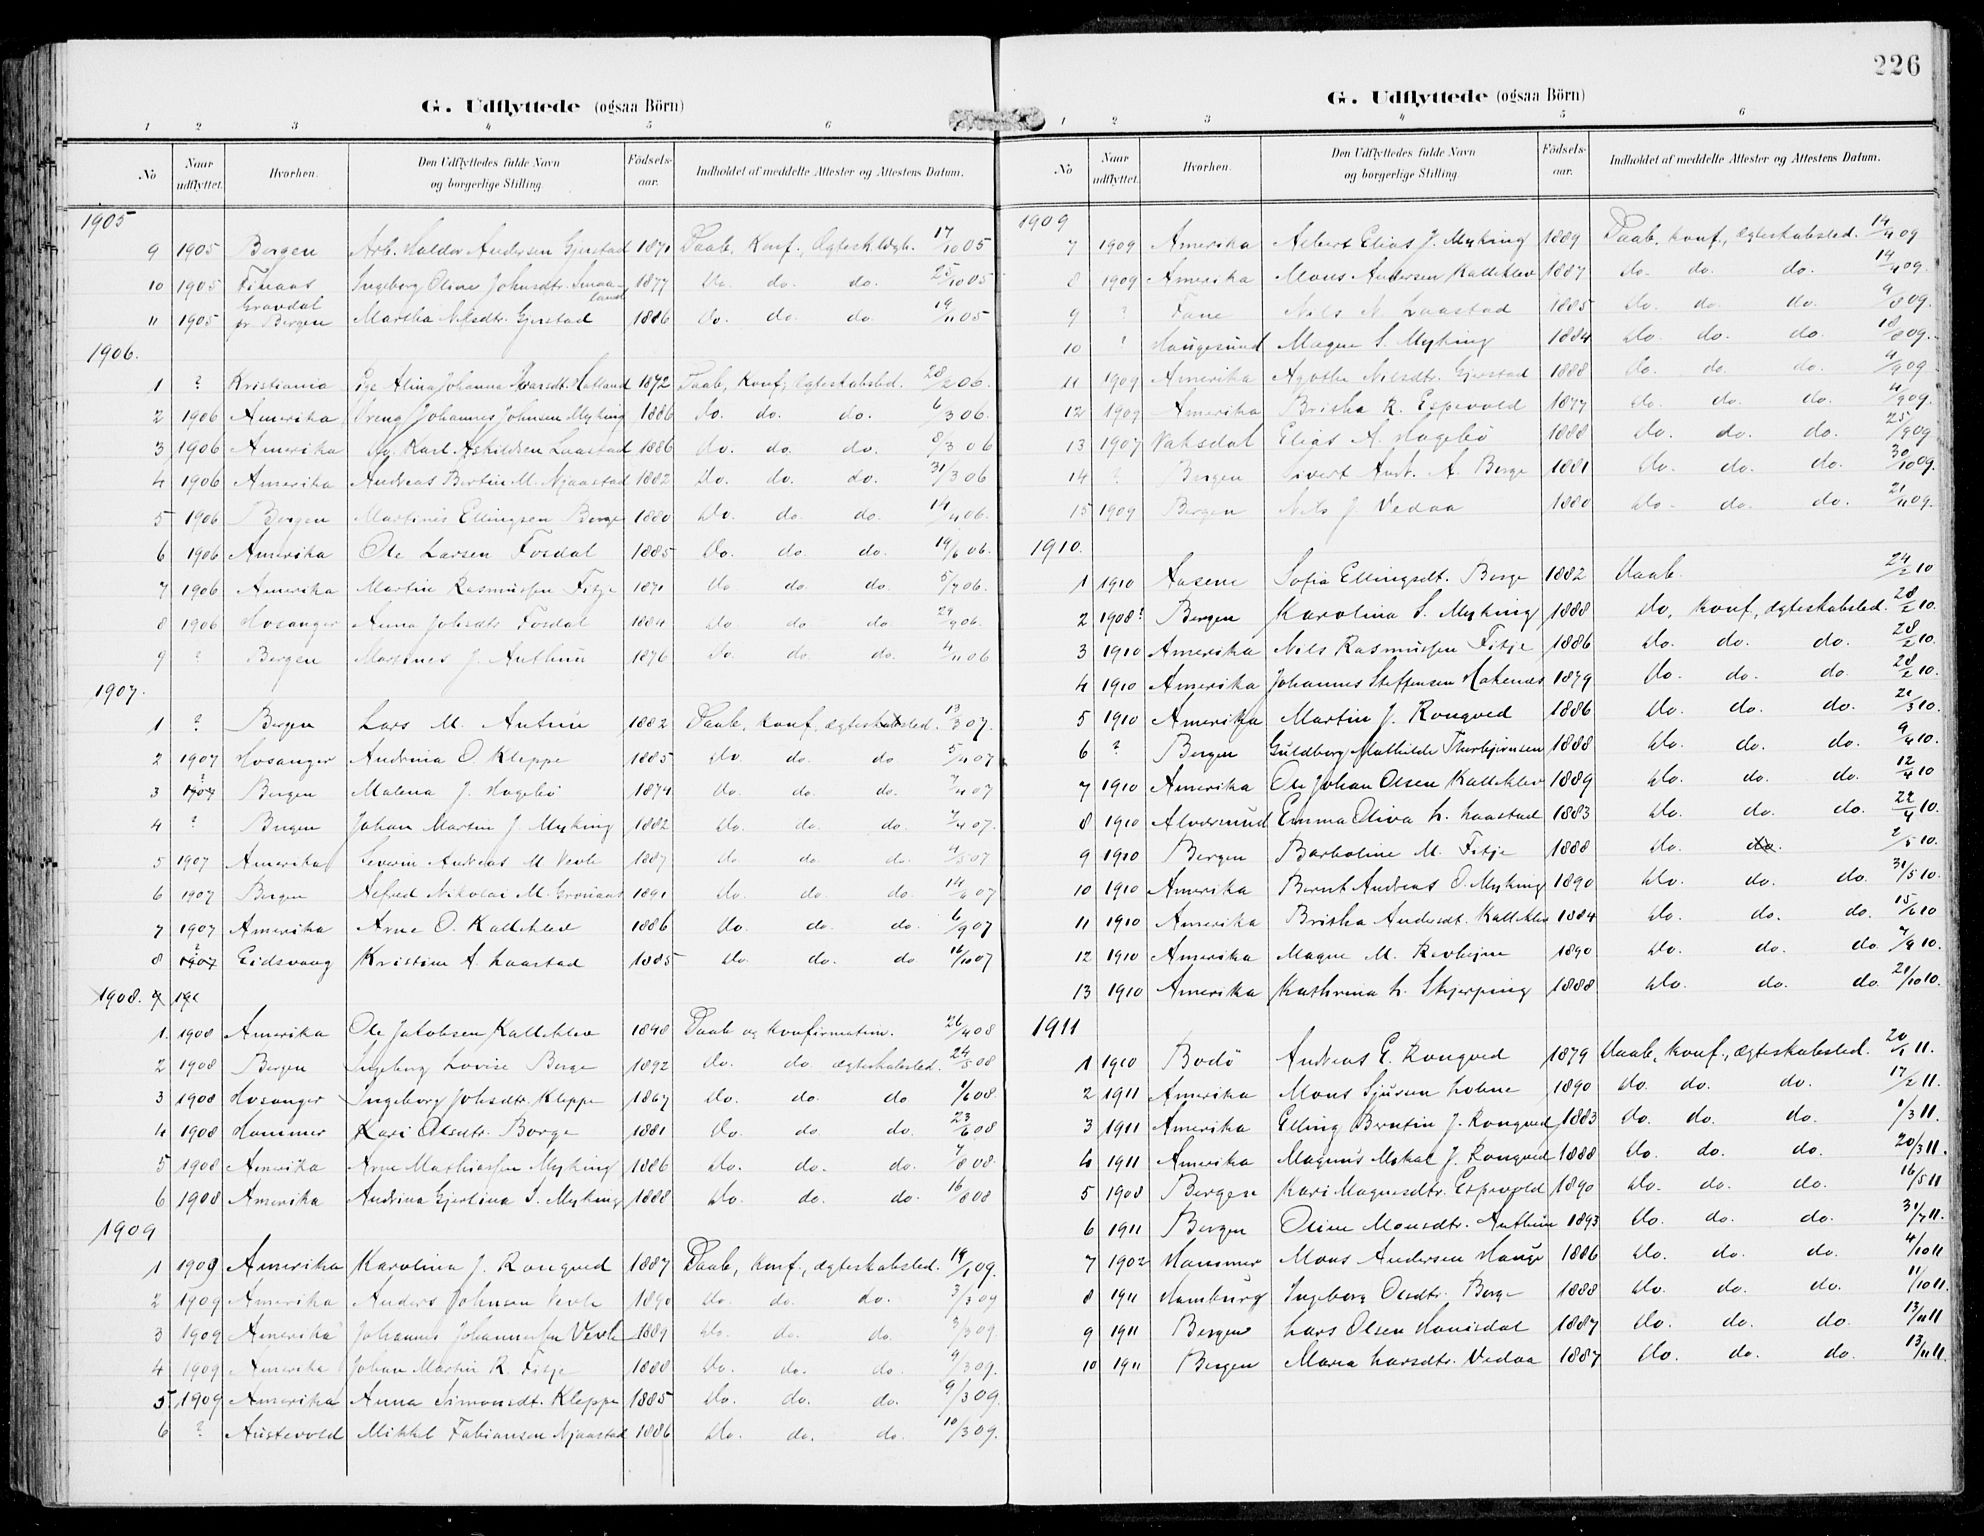 G. Udflyttede (ogsaa Börn)
1 2 3 4 5 6 7
No Naar udflyttet. Hvorhen. Den Udflyttedes fulde Navn og borgerlige Stilling. Födsels-aar. Indholdet af meddelte Attester og Attestens Datum.
1905
9 1905 Bergen Arb. Haldor Andersen Gjerstad 1871 Daab, Konf., 17/10 05
10 1905 Finaas Ingeborg Oline Johnsdtr. Smaaland 1877 do. do. do. 25/10 05
11 1905 Gravdal pr. Bergen Martha Nilsdtr. Gjerstad 1886 do. do. do. 19/11 05
1906.
1 ? Kristiania Pige Alina Johanna Hatland 1872 Daab, Konf., ægteskabsled. 28/2 06.
2 1906 Amerika Dreng Johannes Johnsen Myking 1886 do. do. do. 6/3 06.
3 1906 Amerika do. Karl Askildsen Laastad 1886 do. do. do. 8/3 06
4 1906 Amerika Andreas Bertin M. Njaastad 1882 do. do. do. 31/3 06
5 1906 Bergen Martines Ellingsen Berge 1880 do. do. do. 19/4 06.
6 1906 Amerika Ole Larsen Fosdal 1885 do. do. do. 19/6 06.
7 1906 Amerika Martin Rasmussen Fitje 1871 do do do. 5/7 06.
8 1906 Hosanger Anna Johsdtr. Fosdal 1884 do do do 29/9 06.
9 ? Bergen Martines J. Anthun 1876 do. do do. 4/11 06
1907.
1 ? Bergen Lars M. Antun 1882 Daab, konf., ægteskabsled. 13/3 07.
2 1907 Hosanger Andrina O. Kleppe 1885 do do. do. 5/4 07
3 ? 1907 Bergen Malena J. Hagebö 1874 do. do. do. 7/4 07
4 ? Bergen Johan Martin J. Myking 1882 do. do. do. 7/4 07.
5 1907 Amerika Severin Andreas M. Vevle 1887 do do. do. 9/5 07
6 1907 Bergen Alfred Nikolai M. Grönaas 1891 do. do. do. 14/6 07
7 1907 Amerika Arne O. Kalleklev 1886 do. do. do. 6/9 07
8 ? 1907 Eidsvaag Kristine A. Laastad 1885 do. do. do 16/10 07
1908.
1. 1908 Amerika Ole Jakobsen Kalleklev 1848 Daab og konfirmation. 26/4 08
2 1908 Bergen Ingeborg Lovise Berge 1892 do. do. ægteskabsled. 24/5 08
3 1908 Hosanger Ingeborg Johsdtr. Kleppe 1867 do. do. do 1/6 08.
4 1908 Hammer Kari Olsdtr. Borge 1881 do do do. 23/6 08
5 1908 Amerika Arne Mathiassen Myking 1886 do. do. do. 7/8 08.
6 1908 Amerika Andrina Gjertina S. Myking 1888 do do. do. 16/8 08
1909
1 1909 Amerika Karolina J. Rongved 1887 Daab, Konf., ægteskabsled. 19/1 09.
2 1909 Amerika Anders Johnsen Vevle 1890 do. do. do. 3/3 09
3 1909 Amerika Johannes Johannessen Vevle 1889 do. do. do. 3/3 09
4 1909 Amerika Johan Martin R. Fitje 1888 do. do. do. 9/3 09.
5 1909 Amerika Anna Simonsdt. Kleppe 1885 do. do. do. 9/3 09.
6 ? Austevold Mikkel Fabiansen Njaastad 1886 do. do. do. 10/3 09.
226
G. Udflyttede (ogsaa Börn)
1 2 3 4 5 6
No Naar udflyttet. Hvorhen. Den Udflyttedes fulde Navn og borgerlige Stilling. Födsels-aar. Indholdet af meddelte Attester og Attestens Datum.
1909
7 1909 Amerika Albert Elias J. Myking 1889 Daab, konf., ægteskabsled. 14/4 09
8 1909 Amerika Mons Andersen Kalleklev 1887 do. do. do. 19/4 09.
9 ? Fane Nils N. Laastad 1885 do. do. do. 9/8 09.
10 ? Haugesund Magne S. Myking 1884 do. do. do. 18/8 09.
11 1909 Amerika Agathe Nilsdtr. Gjerstad 1888 do. do. do. 9/9 09.
12 1909 Amerika Britha R. Espevold 1877 do. do. do. 4/9 09.
13 1907 Vaksdal Elias A. Hagebö 1888 do. do. do. 25/9 09
14 ? Bergen Sivert Ant. A. Berge 1881 do. do. do. 30/10 09.
15 1909 Bergen Nils J. Vedaa 1880 do. do. do. 21/11 09.
1910.
1 1910 Aasene Sofia Ellingsdt. Berge 1882 Daab. 24/2 10
2 1908? Bergen Karolina S. Myking 1888 do, konf., ægteskabsled. 28/2 10.
3 1910 Amerika Nils Rasmussen Fitje 1886 do. do. do. 28/2 10.
4 1910 Amerika Johannes Steffensen Hokenæs 1879 do. do. do. 28/2 10.
5 1910 Amerika Martin J. Rongved 1886 do. do. do. 21/3 10.
6 ? Bergen Guldborg Mathilde Thorbjørnsen 1888 do. do. do. 9/4 10.
7 1910 Amerika Ole Johan Olsen Kalleklev 1889 do. do. do. 12/4 10
8 1910 Alversund Emma Oliva L. Laastad 1883 do. do. do. 22/4 10.
9 1910 Bergen Barboline M. Fitje 1888 do. do. 2/5 10.
10 1910 Amerika Bernt Andreas O. Myking 1890 do. do. do. 31/5 10.
11 1910 Amerika Britha Andersdt. Kalleklev 1884 do. do. do. 15/6 10
12 1910 Amerika Magne M. Revheim 1890 do. do. do 7/9 10.
13 1910 Amerika Kathrina L. Skjerping 1888 do. do. do. 21/10 10.
1911
1 1910 Bodö Andreas E. Rongved 1879 Daab, konf., ægteskabsled. 20/1 11.
2 1911 Amerika Mons Sjursen Lohne 1890 do. do. do. 17/2 11.
3 1911 Amerika Elling Berntin J. Rongved 1883 do. do. do. 1/3 11.
4 1911 Amerika Magnus Mikal J. Rongved 1888 do. do. do. 20/3 11.
5 1908 Bergen Kari Magnesdtr. Espevold 1890 do. do. do. 16/5 11
6 1911 Bergen Oline Monsdtr. Anthun 1893 do. do. do. 31/7 11.
7 1902 Hammer Mons Andersen Hauge 1886 do. do. do. 4/10 11
8 1911 Hamburg Ingeborg Olsdtr. Berge 1888 do. do. do. 11/10 11.
9 1911 Bergen Lars Olsen Hanisdal 1887 do. do. do. 13/11 11
10 1911 Bergen Maria Larsdtr. Vedaa 1887 do. do. do. 13/11 11.